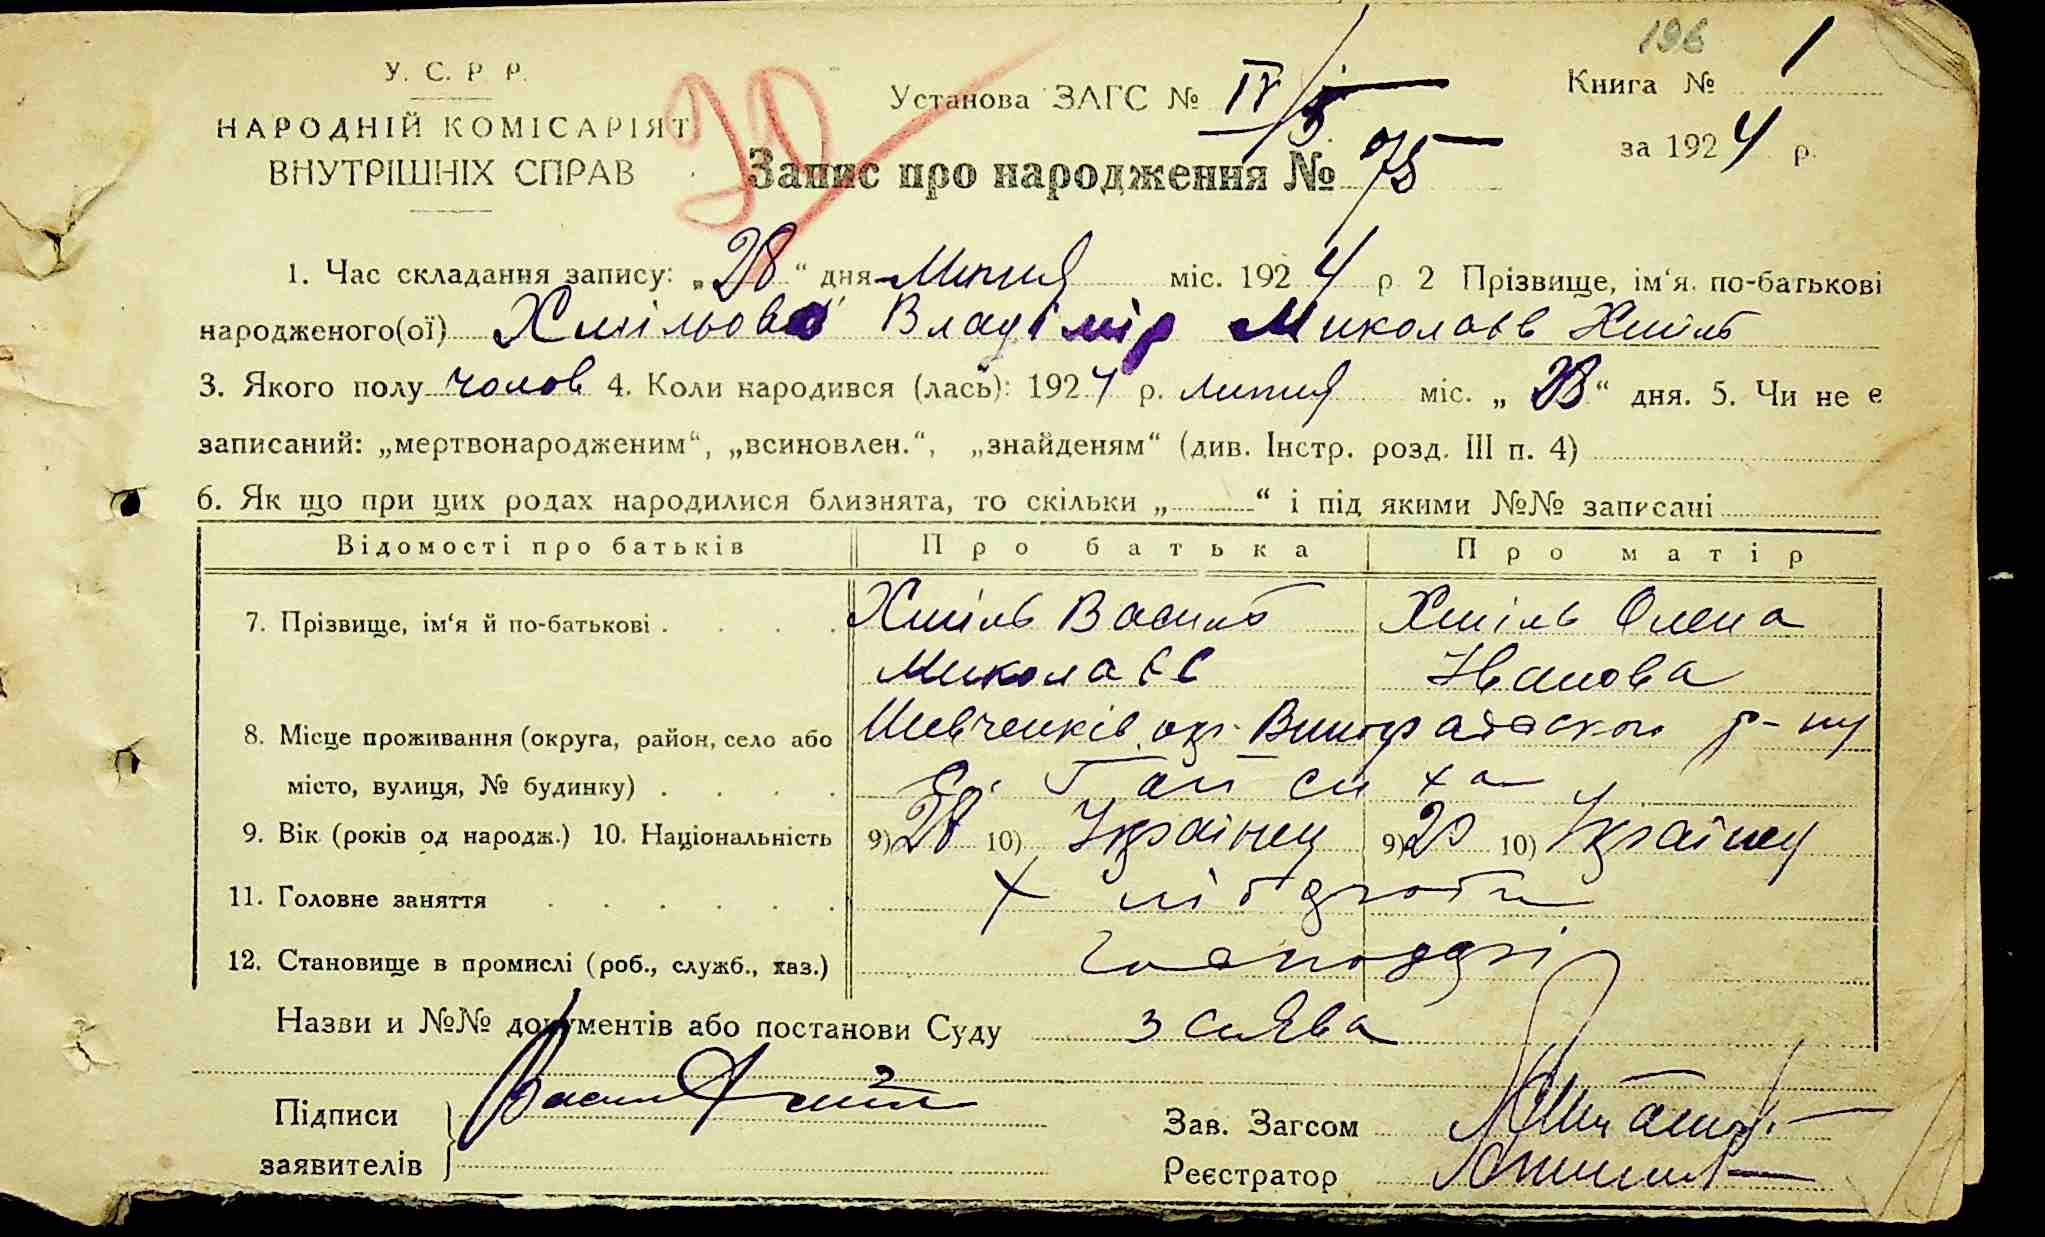 196
У. С. Р Р.
Установа ЗАГС № IV/5
Книга № 1
НАРОДНІЙ КОМІСАРІЯТ
за 1924 р.
ВНУТРІШНІХ СПРАВ
Запис про народження № 75
1. Час складання запису: „28“ дня Липня міс. 1924 р 2 Прізвище, ім‘я, по-батькові
народженого(ої) Владімір Миколаєв Хміль
3. Якого полу чолов 4. Коли народився (лась): 1924 р. липня міс. „28“ дня. 5. Чи не є
записаний: „мертвонародженим“, „всиновлен.“, „знайденям“ (див. Інстр. розд. III п. 4)
6. Як що при цих родах народилися близнята, то скільки „ “ і під якими №№ записані
Відомості про батьків Про батька Про матір
7. Прізвище, ім‘я й по-батькові . . . . Хміль Василь Хміль Олена
Миколаєв Іванова
8. Місце проживання (округа, район, село або Шевченків. окр. р-ну
місто, вулиця, № будинку) . . . . с.
9. Вік (років од народж.) 10. Національність 9) 28 10) Українец 9) 20 10) Українец
11. Головне заняття . . . . . . хлібороби
12. Становище в промислі (роб., служб., хаз.) господарі
Назви и №№ документів або постанови Суду заява
Підписи
заявителів
Зав. Загсом
Реєстратор